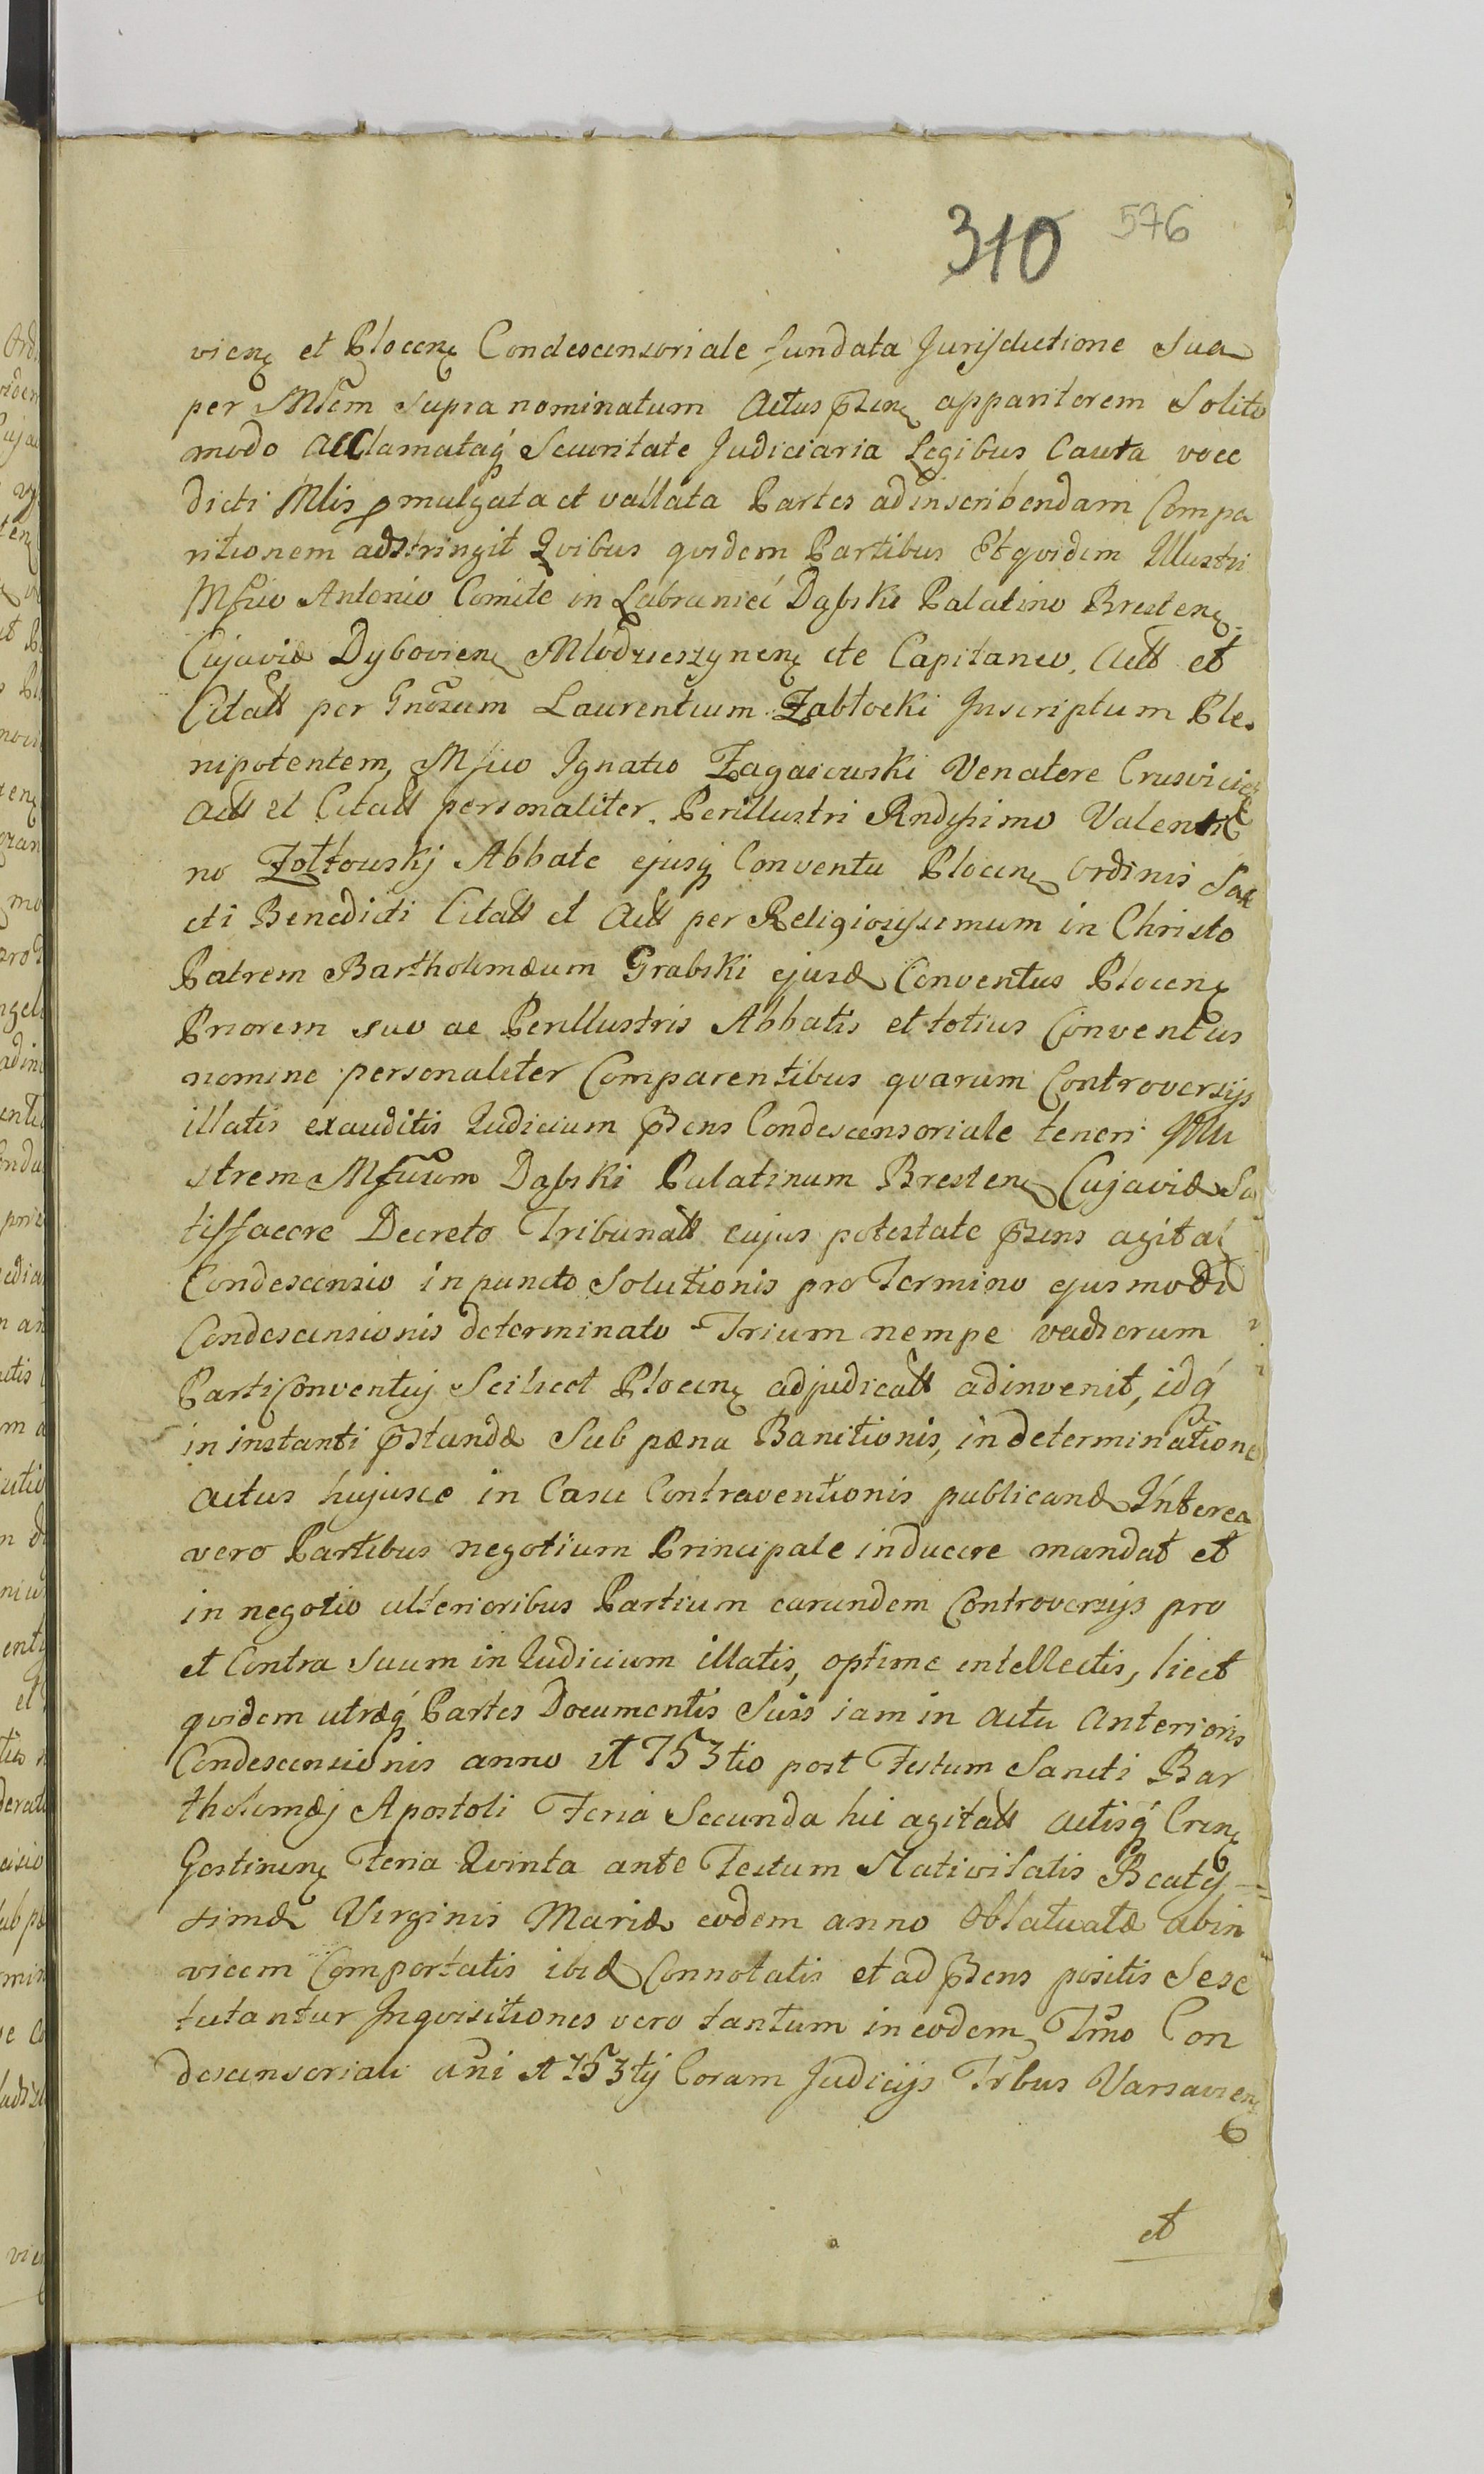 310 576
vienę et Plocenę Condescensoriale fundata Jurisdictione Sua
per Mlēm supra nominatum Actus p̄senę apparitorem Solito
modo Acclamataq́ Securitate Judiciaria Legibus Cauta voce
dicti Mlis pmulgata et vallata Partes ad inscribendam Compa
ritionem adstringit Qvibus qvidem Partibus Et qvidem Illustri
Mfico Antonio Comite in Lubraniec Dąbski Palatino Brestenę
Cujaviæ Dybovienę Mlodzieszynenę etc Capitaneo, Actt et
Citatt per Gnōsum Laurentium Zabłocki Inscriptum Ple-
nipotentem, Mfico Ignatio Zagaiewski Venatore Crusvicię
Actt et Citatt personaliter. Perillustri Rndissimo Valenti
no Zołtowskj Abbate ejusq́ Conventu Plocenę Ordinis San
cti Benedicti Citatt et Actt per Religiosissimum in Christo
Patrem Bartholomæum Grabski ejusd Conventus Plocenę
Priorem suo ac Perillustris Abbatis et totius Conventus
nomine personaliter Comparentibus qvarum Controversijs
illatis exauditis Iudicium p̄sens Condescensoriale teneri Illu
strem Mficum Dąbski Palatinum Brestenę Cujaviæ Sa
tisfacere Decreto Tribunatt cujus potestate p̄sens agitat
Condescensio in puncto Solutionis pro Termino ejusmodi
Condescensionis determinato Trium nempe vadiorum
Parti Conventuj Scilicet Plocenę adjudicatt adinvenit, idq́
in instanti p̄standæ Sub pæna Banitionis, in determinatione
Actus hujusce in Casu Contraventionis publicand Interea
vero Partibus negotium Principale inducere mandat et
in negotio ulterioribus Partium earundem Controversijs pro
et Contra Suum in Iudicium illatis, optime intellectis, licet
qvidem utræq́ Partes Documentis Suis iam in Actu Anterioris
Condescensionis anno 1753tio post Festum Sancti Bar
tholomæj Apostoli Feria Secunda hic agitatt Actisq́ Crenę
Gostinenę Feria Qvinta ante Festum Nativitatis Beatis=
simæ Virginis Mariæ eodem anno Oblatuatæ abin
vicem Comportatis ibid Connotatis et ad p̄sens positis Sese
tutantur Inqvisitiones vero tantum in eodem Tm̄o Con
descensoriali ani 1753tij Coram Judicijs Trbus Varsavienę
et